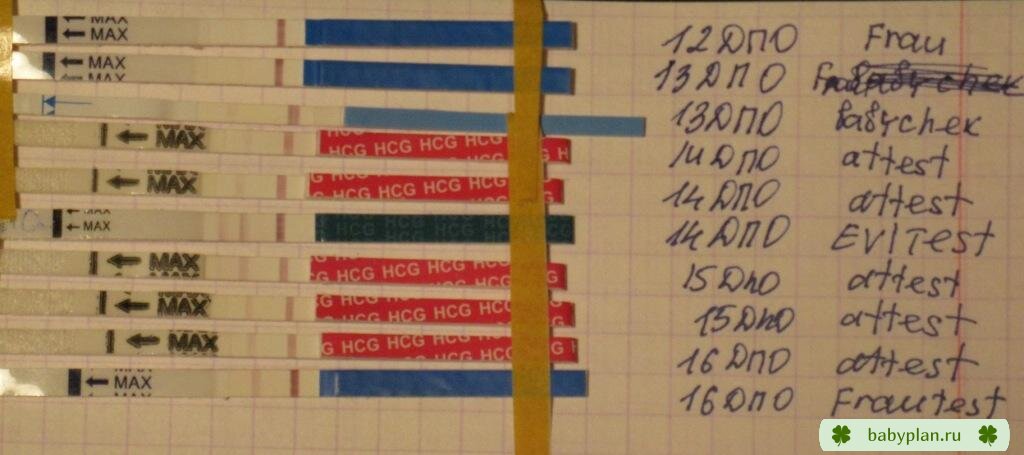 MAX
MAX 12 ДПО Frau
MAX 13 ДПО
13 ДПО babychek
MAX HCG HCG HCG HCG 14 ДПО attest
MAX HCG HCG HCG HCG 14 ДПО attest
MAX
MAX HCG HCG HCG 14 ДПО EVITEST
MAX HCG HCG HCG HCG 15 Дпо attest
MAX HCG HCG HCG HCG 15 Дпо attest
MAX HCG HCG HCG HCG 16 ДПО attest
MAX 16 ДПО Frautest
babyplan.ru